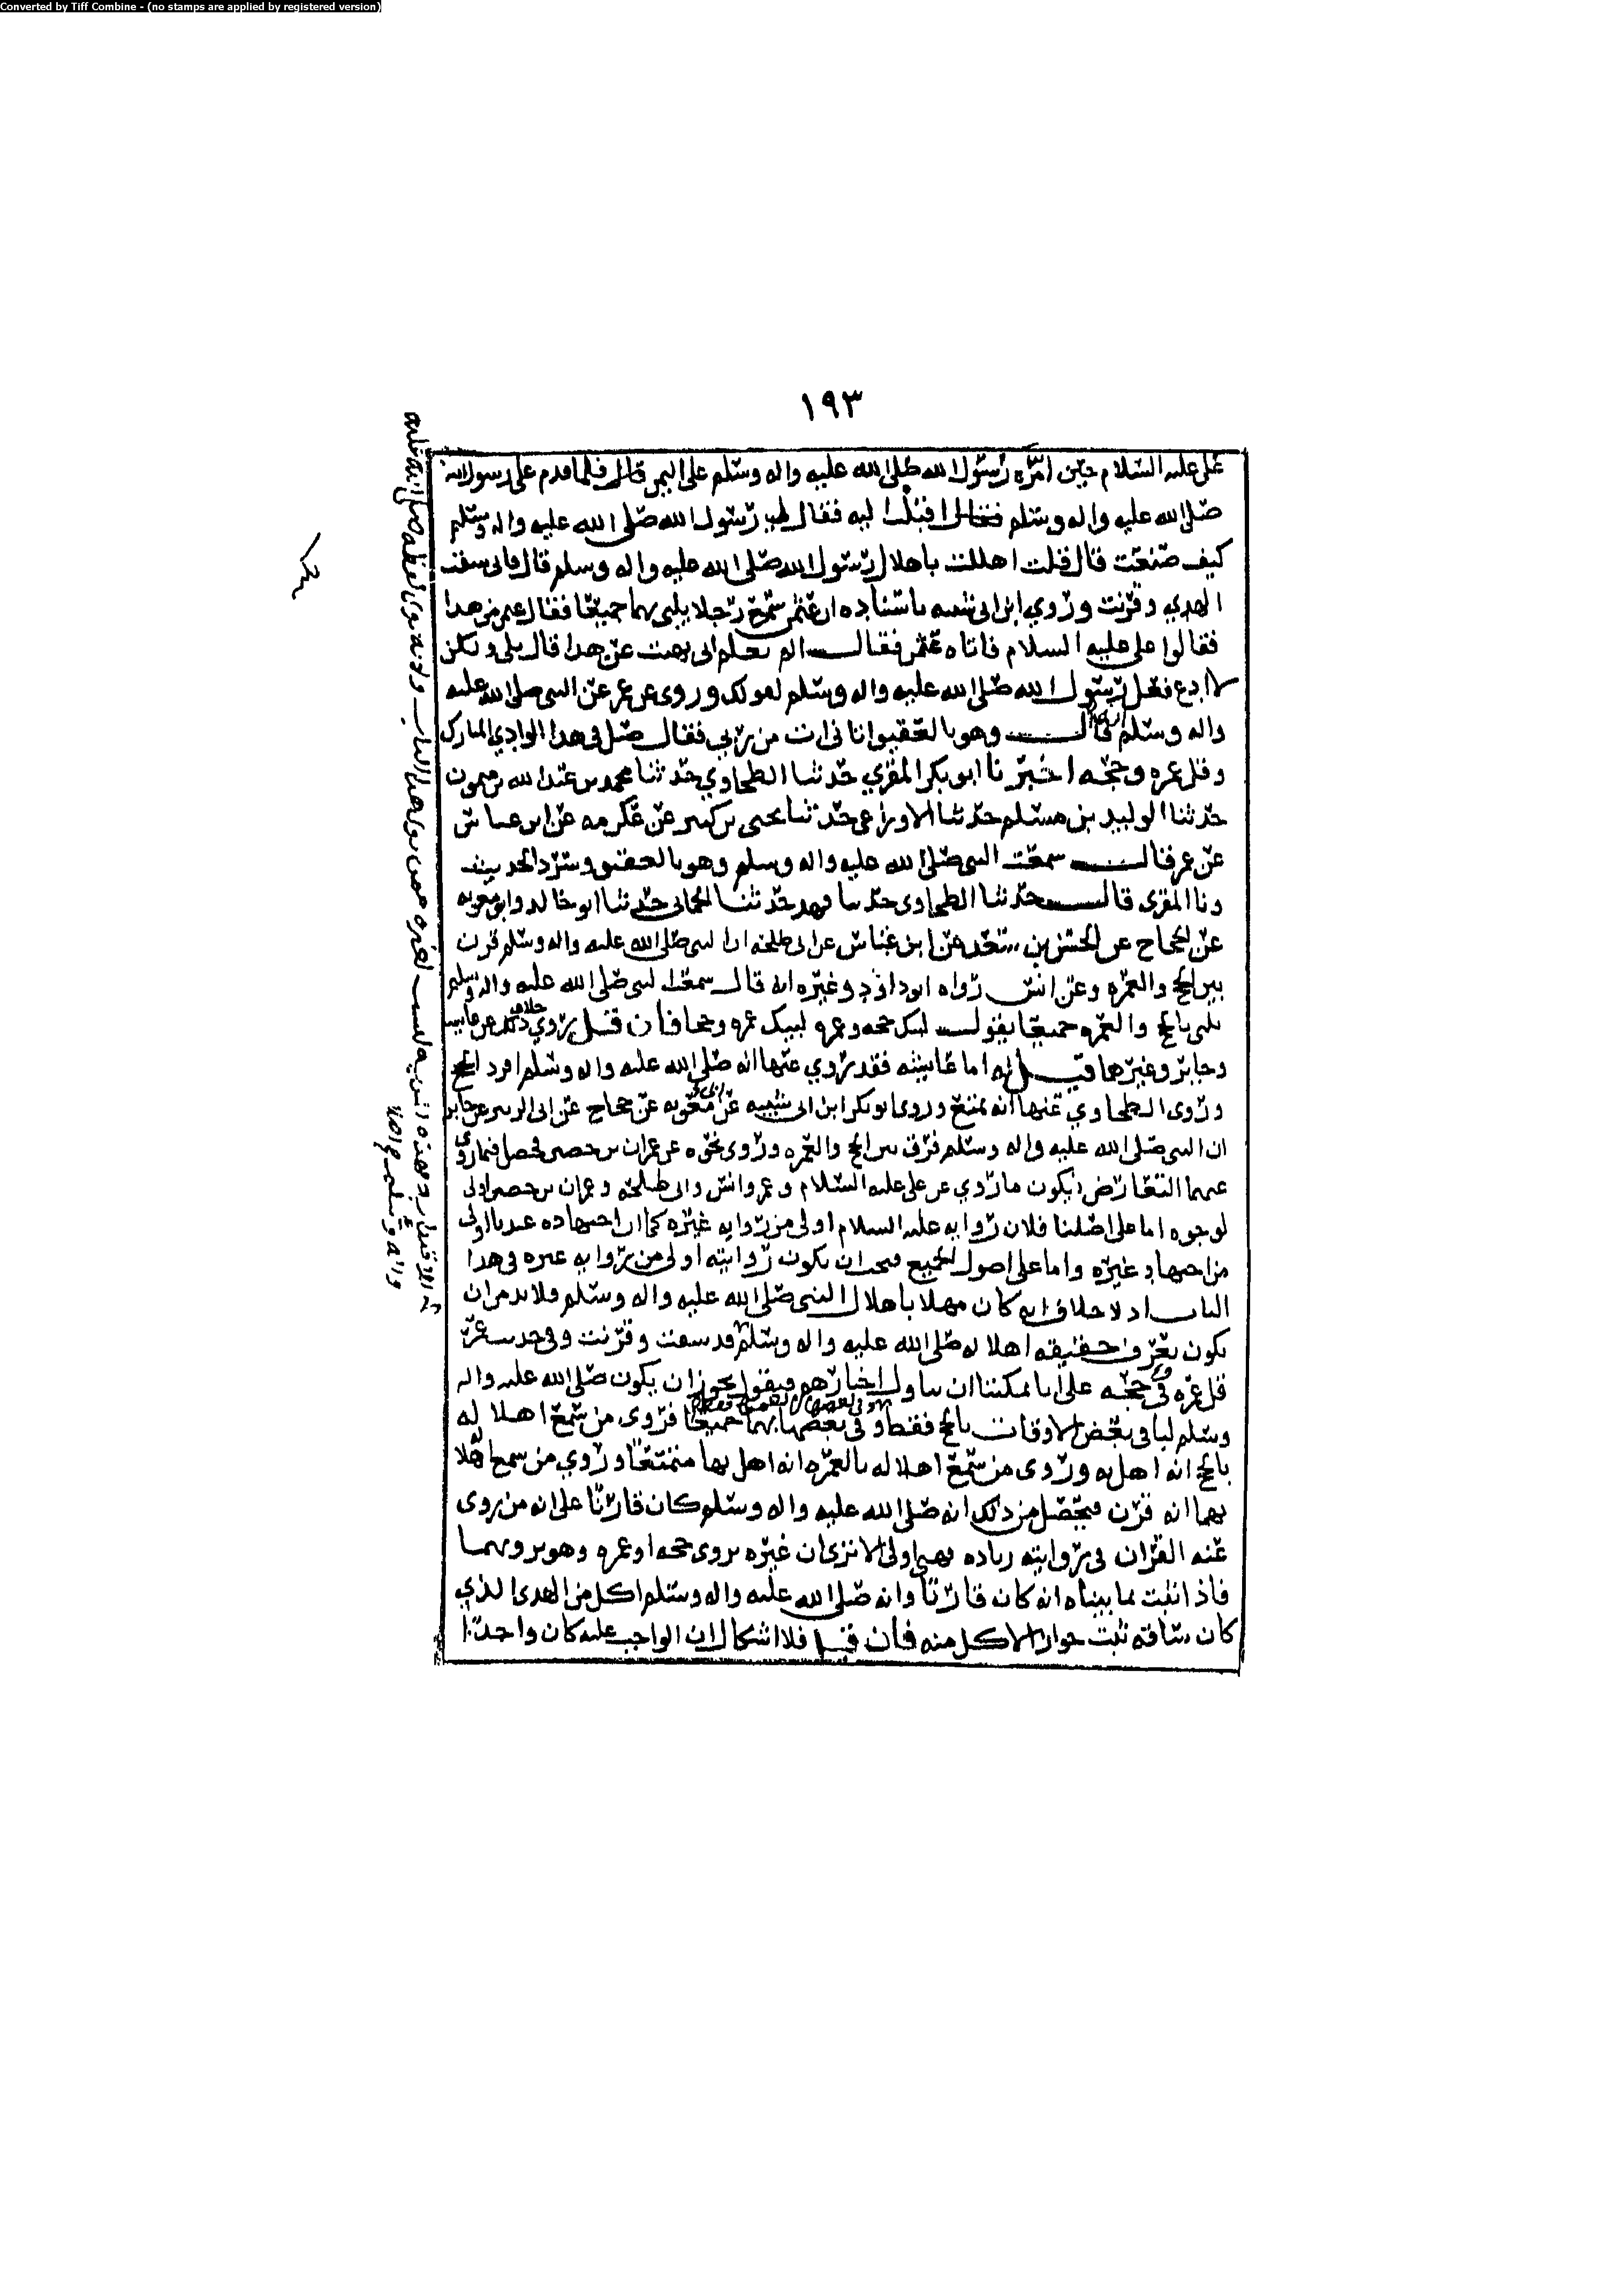 Converted by Tiff Combine - (no stamps are applied by registered version)
١٩٣
على عليه السلام حين امره رسول الله صلى الله عليه واله وسلم على اليمن قال فلما قدم على رسول الله
صلى الله عليه واله وسلم فقال له رسول الله صلى الله عليه واله وسلم
كيف صنعت قال قلت اهللت باهلال رسول الله صلى الله عليه واله وسلم قال فاني سقت
الهدي وقرنت وروي ابن ابي شيبه باسناده ان عثمن سمع رجلا يلبي بهما جميعا فقال عثمن من هذا
فقالوا علي عليه السلام فاتاه عثمن فقال الم تعلم اني نهيت عن هذا قال بلى ولكن
لا ادع فعل رسول الله صلى الله عليه واله وسلم لقولك وروى عن عمر عن النبي صلى الله عليه
واله وسلم قال وهو بالعقيق اتاني ات من ربي فقال صل في هذا الوادي المبارك
وقل عمره وحجه اخبرنا ابو بكر المقري حدثنا الطحاوي حدثنا محمد بن عبدالله بن ميمون
حدثنا الوليد بن مسلم حدثنا الاوزاعي حدثنا يحيى بن كثير عن عكرمه عن ابن عباس
عن عمر قال سمعت النبي صلى الله عليه واله وسلم وهو بالعقيق وسرد الحديث
ونا المقري قال حدثنا الطحاوي حدثنا فهد حدثنا الحماني حدثنا ابو خالد وابو معويه
عن الحجاج عن الحسن بن سعد عن ابن عباس عن ابي طلحه ان النبي صلى الله عليه واله وسلم قرن
بين الحج والعمره وعن انس رواه ابو داود وغيره انه قال سمعت النبي صلى الله عليه واله وسلم
يلبي بالحج والعمره جميعا يقول لبيك حجه وعمره لبيك عمره وحجا فان قيل روي خلاف ذلك عن عايشه
وجابر وغيرهما قيل له اما عايشه فقد روي عنها انه صلى الله عليه واله وسلم افرد الحج
وروى الطحاوي عنها انه تمتع وروى ابو بكر ابن ابي شيبه عن ابي معويه عن حجاج عن ابي الزبير عن جابر
ان النبي صلى الله عليه واله وسلم قرن بين الحج والعمره وروى نحوه عن عمران بن حصين فحصل فيما روي
عنهما التعارض فيكون ما روي عن علي عليه السلام وعمر وانس وابي طلحه وعمران بن حصين اولى
لوجوه اما على اصلنا فلان روايه عليه السلام اولى من روايه غيره كما ان اجتهاده عندنا اولى
من اجتهاد غيره واما على اصول الجميع فيجب ان يكون روايته اولى من روايه غيره في هذا
الباب اذ لا خلاف انه كان مهلا باهلال النبي صلى الله عليه واله وسلم فلا بد من ان
يكون يعرف حقيقه اهلاله صلى الله عليه واله وسلم قد سقت وقرنت وفي حديث عمر
قل عمره في حجه على انا يمكننا ان نتاول اخبارهم فيقول يجوز ان يكون صلى الله عليه واله
وسلم لبا في بعض الاوقات بالحج فقط وفي بعضها بهما جميعا فروى من سمع اهلاله
بالحج انه اهل به وروى من سمع اهلاله بالعمره انه اهل بها متمتعا وروي من سمع اهلاله
بهما انه قرن فيحصل من ذلك انه صلى الله عليه واله وسلم كان قارنا على انه من روى
عنه القران في روايته زياده فهي اولى الا ترى ان غيره يروى حجه او عمره وهو يرويهما
فاذا ثبت بما بيناه انه كان قارنا وانه صلى الله عليه واله وسلم اكل من الهدى الذي
كان ساقه ثبت جواز الاكل منه فان قيل فلا اشكال ان الواجب عليه كان واحدا